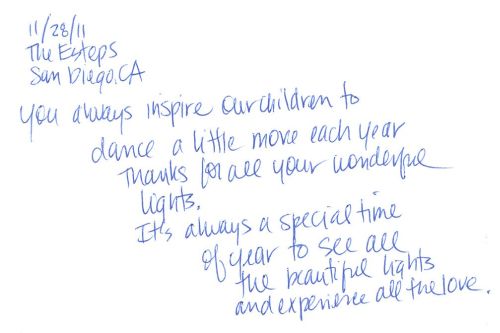 11/28/11
The Esteps
San Diego, CA
You always inspire our children to
dance a little more each year
Thanks for all your wonderful
lights.
It's always a special time
of year to see all
the beautiful lights
and experience all the love.